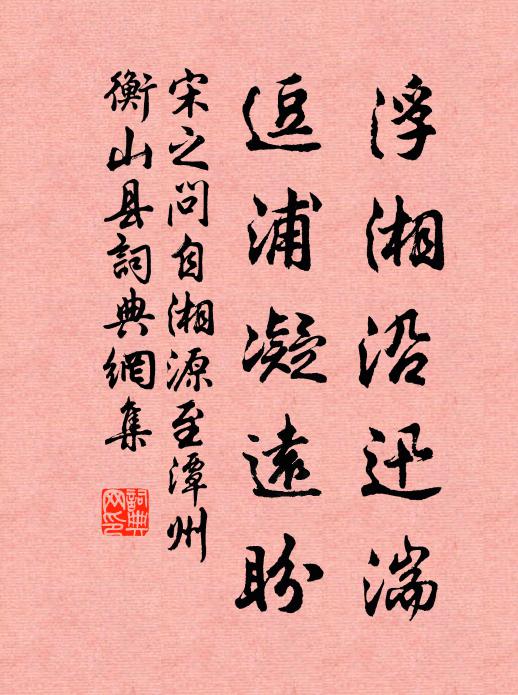 浮湘沿迅湍
逗浦凝遠盼
宋之问自湘源至潭州
衡山县詞典網集
詞典
网印